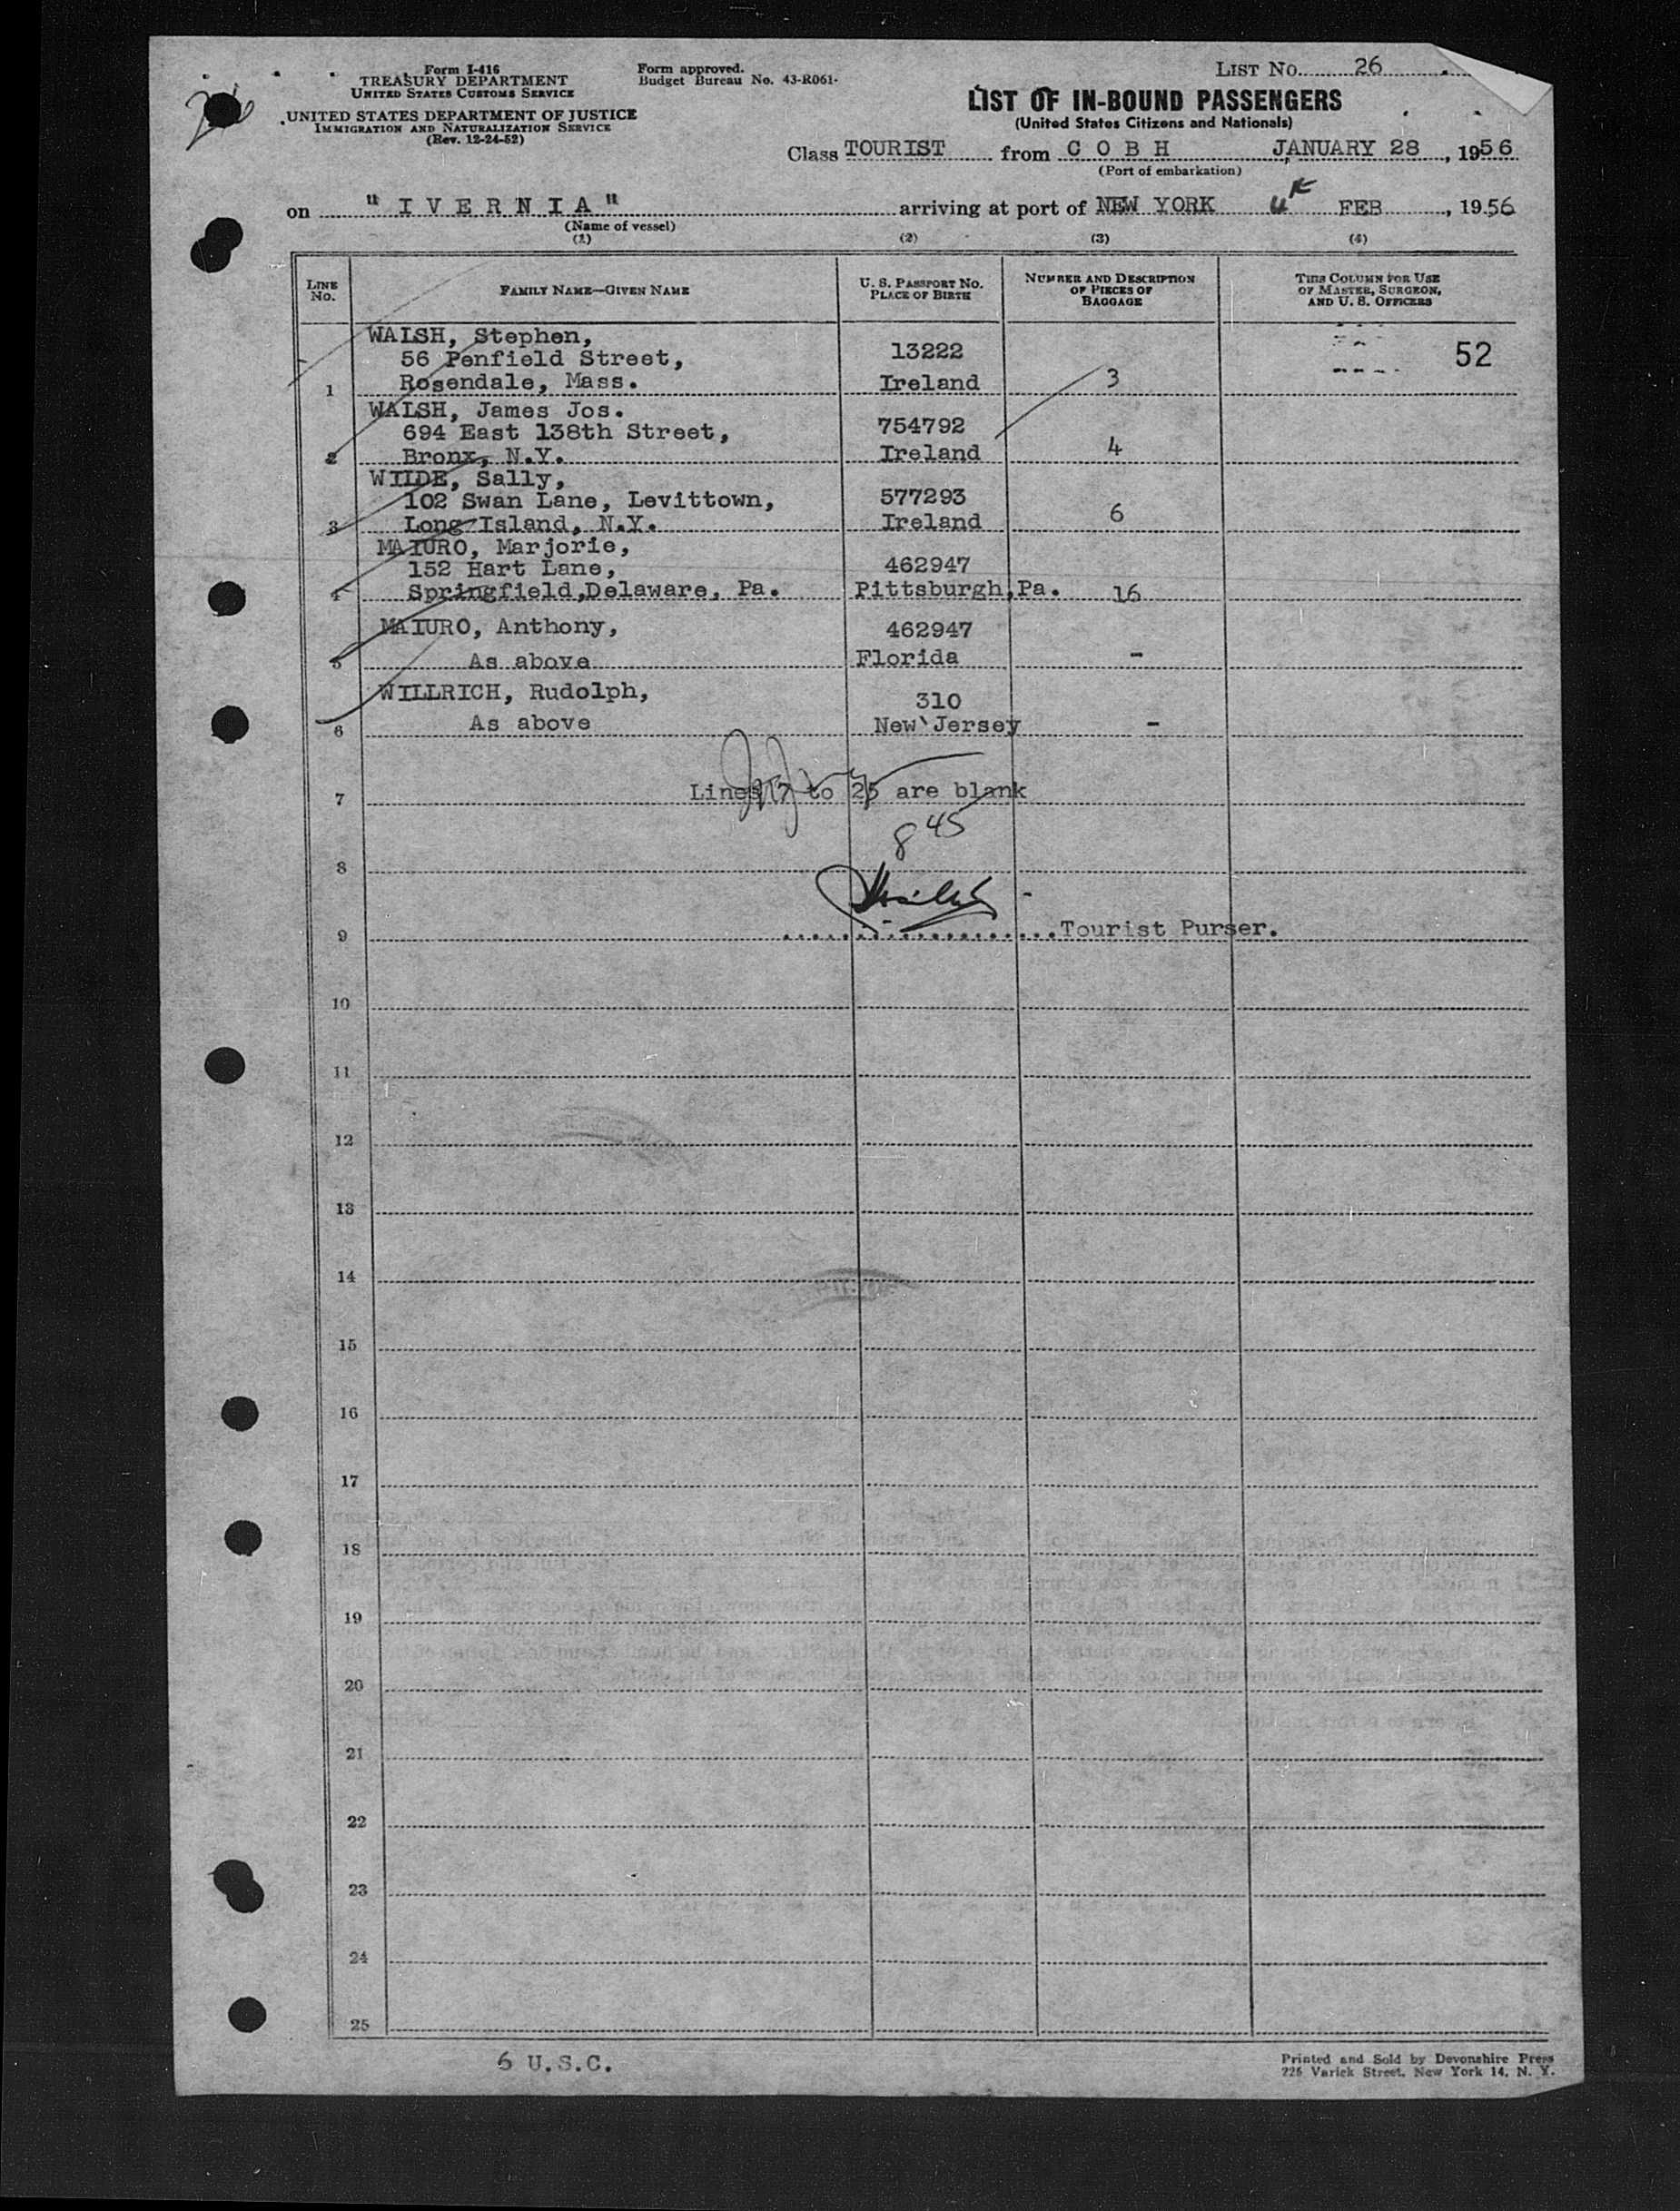 Form I-416
TREASURY DEPARTMENT
UNITED STATES CUSTOMS SERVICE
UNITED STATES DEPARTMENT OF JUSTICE
IMMIGRATION AND NATURALIZATION SERVICE
(Rev. 12-24-52)
Form approved.
Budget Bureau No. 43-R061.
LIST NO. 26
LIST OF IN-BOUND PASSENGERS
(United States Citizens and Nationals)
Class TOURIST from C O B H JANUARY 28, 1956
(Port of embarkation)
on "I V E R N I A" arriving at port of NEW YORK FEB, 1956
(Name of vessel)
(1) (2) (3) (4)
LINE No. FAMILY NAME—GIVEN NAME U. S. PASSPORT NO. PLACE OF BIRTH NUMBER AND DESCRIPTION OF PIECES OF BAGGAGE THIS COLUMN FOR USE OF MASTER, SURGEON, AND U. S. OFFICERS
WALSH, Stephen,
56 Penfield Street, 13222 52
1 Rosendale, Mass. Ireland 3
WALSH, James Jos.
694 East 138th Street, 754792
2 Bronx, N.Y. Ireland 4
WILDE, Sally,
102 Swan Lane, Levittown, 577293
3 Long Island, N.Y. Ireland 6
MAIURO, Marjorie,
152 Hart Lane, 462947
4 Springfield,Delaware, Pa. Pittsburgh,Pa. 16
MAIURO, Anthony, 462947
5 As above Florida -
WILLRICH, Rudolph, 310
6 As above New Jersey -
7 Lines 7 to 25 are blank
8 45
8
9 Tourist Purser.
10
11
12
13
14
15
16
17
18
19
20
21
22
23
24
25
6 U.S.C.
Printed and Sold by Devonshire Press
225 Varick Street, New York 14, N. Y.